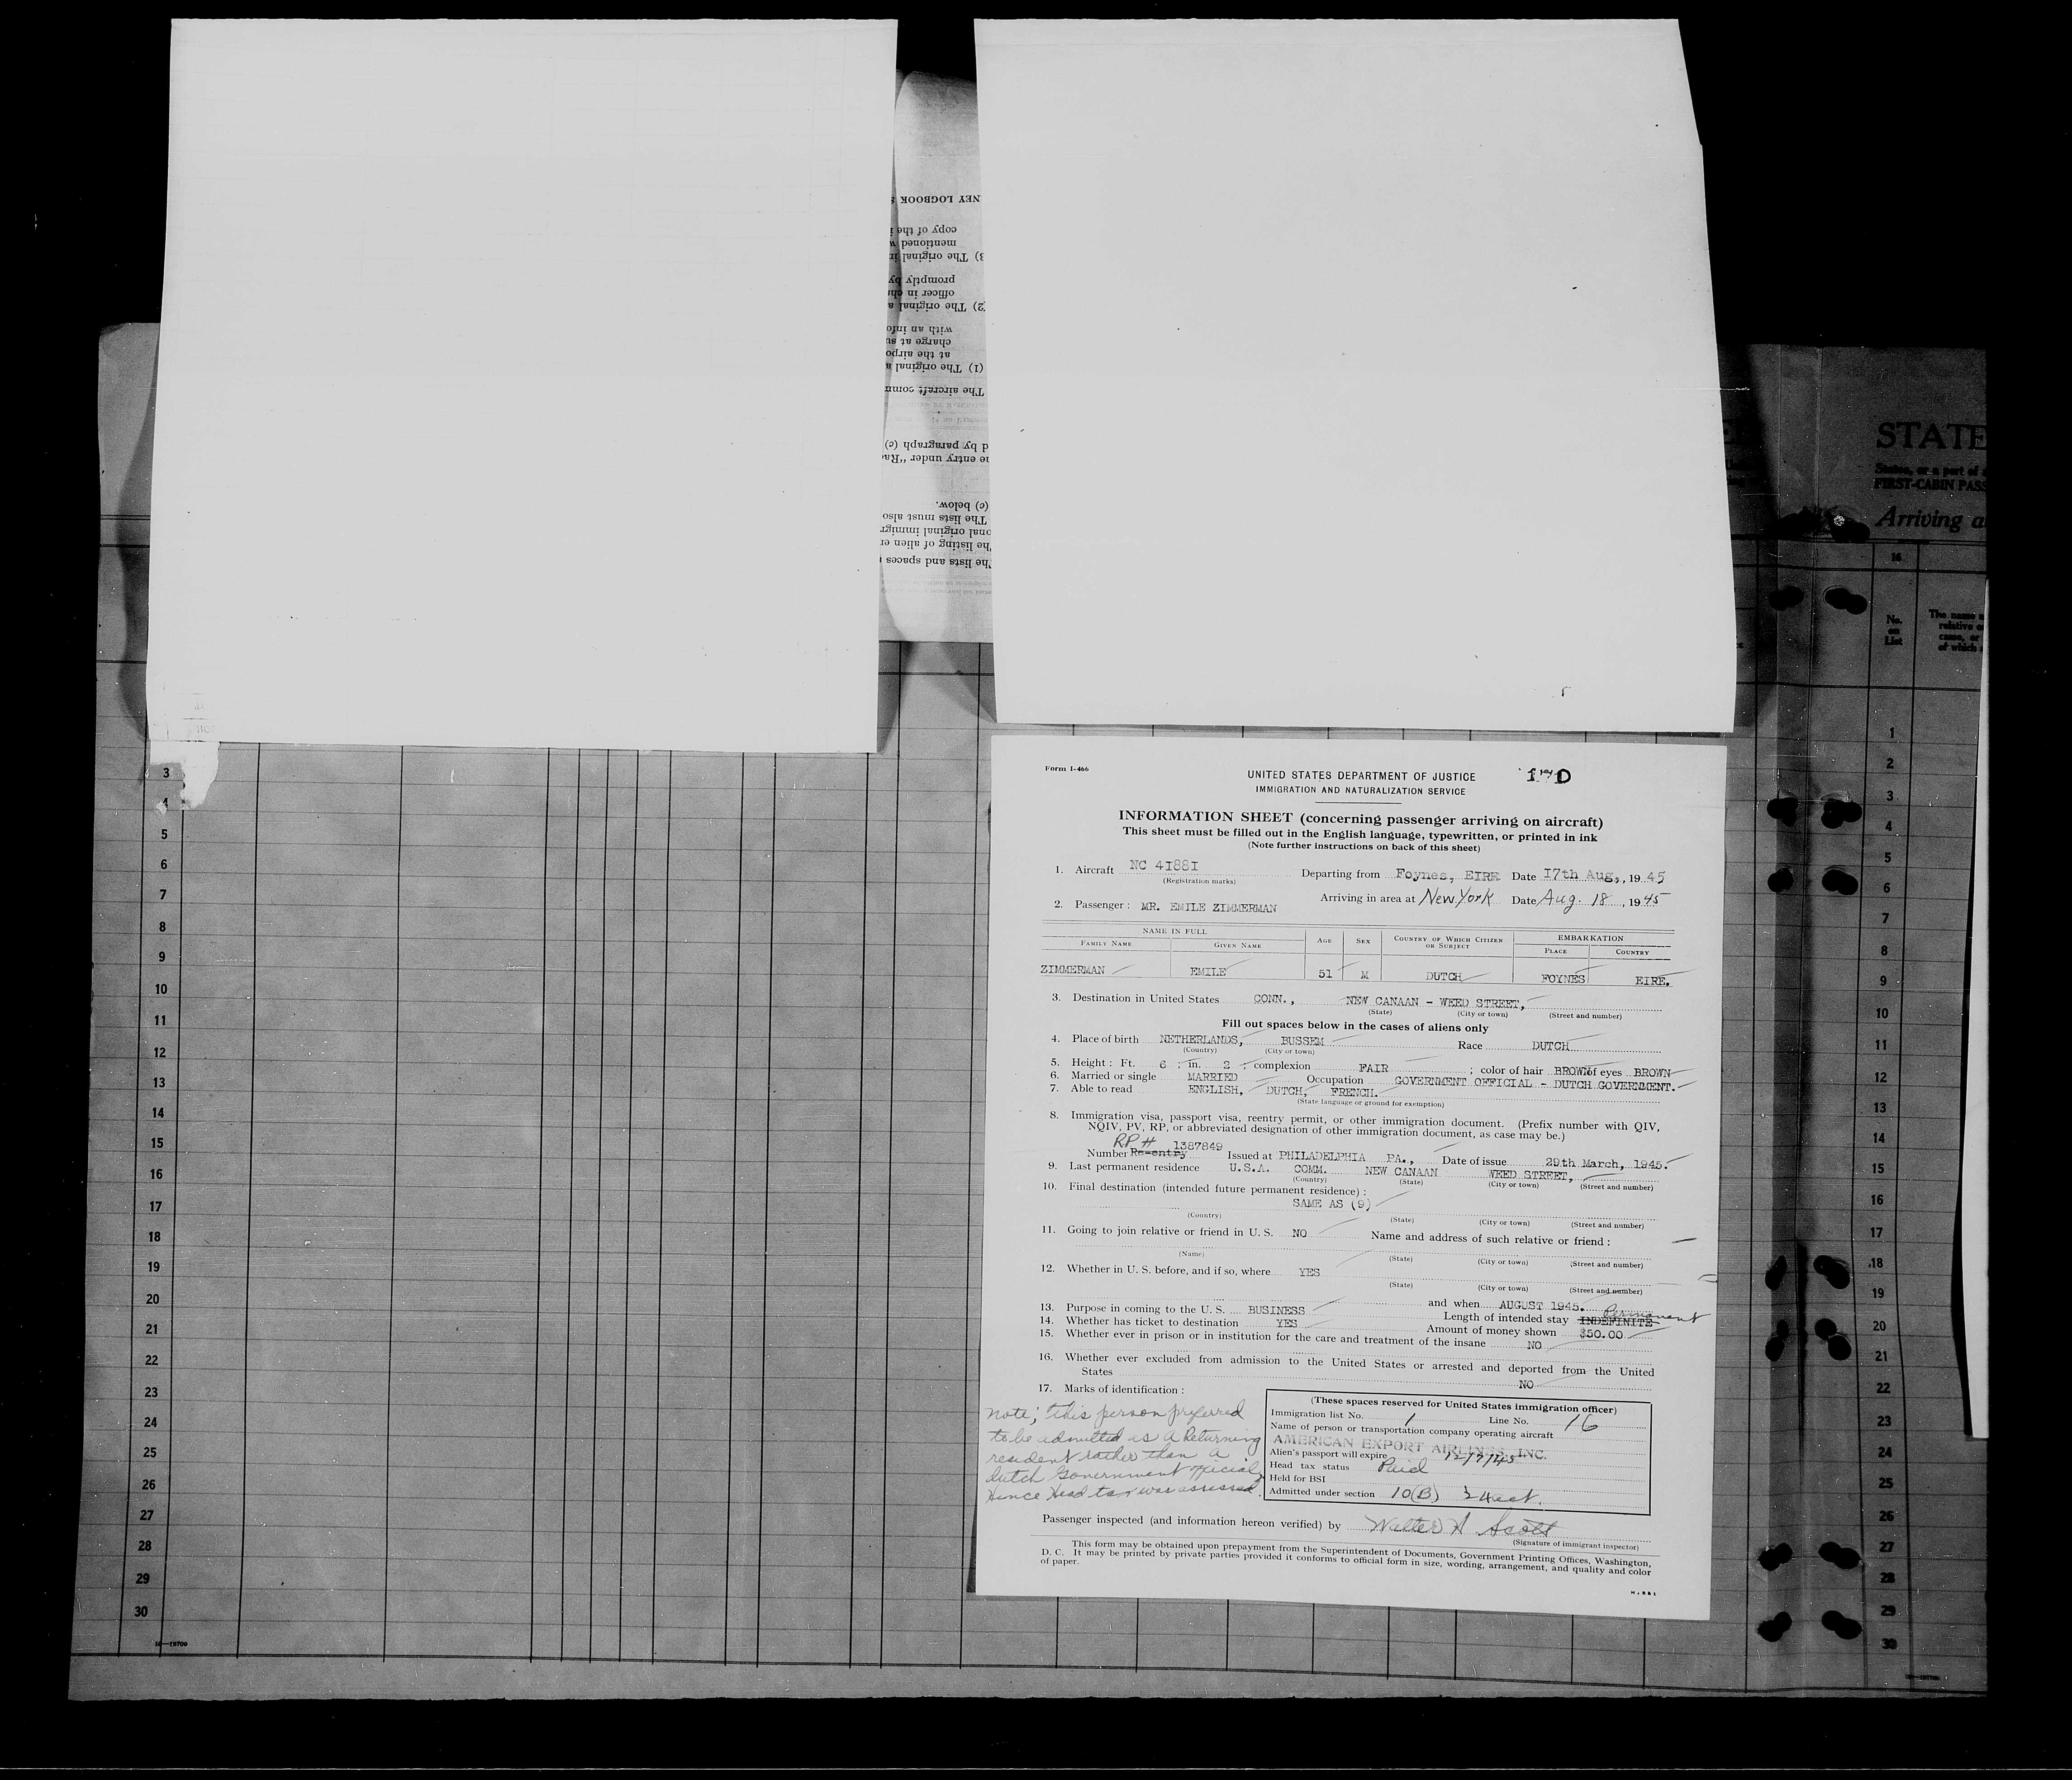 NEY LOGBOOK
copy of the i
mentioned w
3) The original in
promptly by
officer in cha
(2) The original a
with an info
charge at su
at the airpo
(1) The original a
The aircraft comm
d by paragraph (c)
ne entry under "Rac
(c) below.
The lists must also
onal original immigr
he listing of alien en
The lists and spaces
STATE
States, or a part of a
FIRST-CABIN PASS
Arriving a
16
No.
on
List
The name a
relative o
came, or
of which
1
2
3
4
5
6
7
8
9
10
11
12
13
14
15
16
17
18
19
20
21
22
23
24
25
26
27
28
29
30
3
4
5
6
7
8
9
10
11
12
13
14
15
16
17
18
19
20
21
22
23
24
25
26
27
28
29
30
16—19709
Form I-466
UNITED STATES DEPARTMENT OF JUSTICE
IMMIGRATION AND NATURALIZATION SERVICE
INFORMATION SHEET (concerning passenger arriving on aircraft)
This sheet must be filled out in the English language, typewritten, or printed in ink
(Note further instructions on back of this sheet)
1. Aircraft NC 41881 Departing from Foynes, EIRE Date 17th Aug., 1945
(Registration marks)
2. Passenger: MR. EMILE ZIMMERMAN Arriving in area at New York Date Aug. 18, 1945
NAME IN FULL AGE SEX COUNTRY OF WHICH CITIZEN OR SUBJECT EMBARKATION
FAMILY NAME GIVEN NAME PLACE COUNTRY
ZIMMERMAN EMILE 51 M DUTCH FOYNES EIRE.
3. Destination in United States CONN., NEW CANAAN - WEED STREET,
(State) (City or town) (Street and number)
Fill out spaces below in the cases of aliens only
4. Place of birth NETHERLANDS, BUSSEM Race DUTCH
(Country) (City or town)
5. Height: Ft. 6 ; in. 2 ; complexion FAIR ; color of hair BROWN of eyes BROWN
6. Married or single MARRIED Occupation GOVERNMENT OFFICIAL - DUTCH GOVERNMENT.
7. Able to read ENGLISH, DUTCH, FRENCH.
(State language or ground for exemption)
8. Immigration visa, passport visa, reentry permit, or other immigration document. (Prefix number with QIV,
NQIV, PV, RP, or abbreviated designation of other immigration document, as case may be.)
RP #
Number Re-entry 1387849 Issued at PHILADELPHIA PA., Date of issue 29th March, 1945.
9. Last permanent residence U.S.A. COMM. NEW CANAAN WEED STREET,
(Country) (State) (City or town) (Street and number)
10. Final destination (intended future permanent residence):
SAME AS (9)
(Country) (State) (City or town) (Street and number)
11. Going to join relative or friend in U. S. NO Name and address of such relative or friend:
(Name) (State) (City or town) (Street and number)
12. Whether in U. S. before, and if so, where YES
(State) (City or town) (Street and number)
and when AUGUST 1945.
13. Purpose in coming to the U. S. BUSINESS Length of intended stay INDEFINITE Permanent
14. Whether has ticket to destination YES Amount of money shown $50.00
15. Whether ever in prison or in institution for the care and treatment of the insane NO
16. Whether ever excluded from admission to the United States or arrested and deported from the United
States NO
17. Marks of identification:
note; this person preferred
to be admitted as a Returning
resident rather than a
dutch Government official
Hence Head tax was assessed.
(These spaces reserved for United States immigration officer)
Immigration list No. 1 Line No. 16
Name of person or transportation company operating aircraft
AMERICAN EXPORT AIRLINES, INC.
Alien's passport will expire 12/7/45
Head tax status Paid
Held for BSI
Admitted under section 10(B)
Passenger inspected (and information hereon verified) by Walter A Scott
(Signature of immigrant inspector)
This form may be obtained upon prepayment from the Superintendent of Documents, Government Printing Offices, Washington,
D. C. It may be printed by private parties provided it conforms to official form in size, wording, arrangement, and quality and color
of paper.